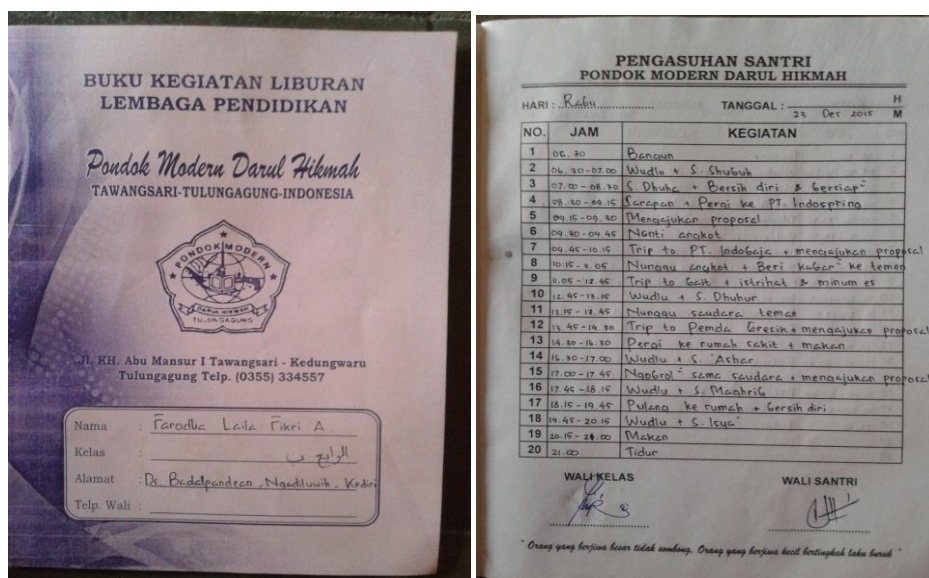 BUKU KEGIATAN LIBURAN
LEMBAGA PENDIDIKAN
Pondok Modern Darul Hikmah
TAWANGSARI-TULUNGAGUNG-INDONESIA
PONDOK MODERN
DARUL HIKMAH
TULUNGAGUNG
Jl. KH. Abu Mansur I Tawangsari - Kedungwaru
Tulungagung Telp. (0355) 334557
Nama : Farodlia Laila Fikri A.
Kelas : الرابع ب
Alamat : Ds. Badalpandean, Ngadiluwih, Kediri
Telp. Wali :
PENGASUHAN SANTRI
PONDOK MODERN DARUL HIKMAH
HARI : Rabu TANGGAL : H
23 Des 2015 M
NO. JAM KEGIATAN
1 06.30 Bangun
2 06.30-07.00 Wudlu + S. Shubuh
3 07.00-08.30 S. Dhuha + Bersih diri & bersiap²
4 08.30-09.15 Sarapan + Pergi ke PT. Indospring
5 09.15-09.30 Mengajukan proposal
6 09.30-09.45 Nanti angkot
7 09.45-10.15 Trip to PT. Indobaja + mengajukan proposal
8 10.15-11.05 Nunggu angkot + Beri kabar² ke temen
9 11.05-12.45 Trip to bait + istrihat & minum es
10 12.45-13.15 Wudlu + S. Dhuhur
11 13.15-13.45 Nunggu saudara teman
12 13.45-14.30 Trip to Pemda Gresik + mengajukan proposal
13 14.30-16.30 Pergi ke rumah sakit + makan
14 16.30-17.00 Wudlu + S. 'Ashar
15 17.00-17.45 Ngobrol² sama saudara + mengajukan proposal
16 17.45-18.15 Wudlu + S. Maghrib
17 18.15-19.45 Pulang ke rumah + bersih diri
18 19.45-20.15 Wudlu + S. Isya'
19 20.15-21.00 Makan
20 21.00 Tidur
WALI KELAS WALI SANTRI
" Orang yang berjiwa besar tidak sombong. Orang yang berjiwa kecil bertingkah laku buruk "